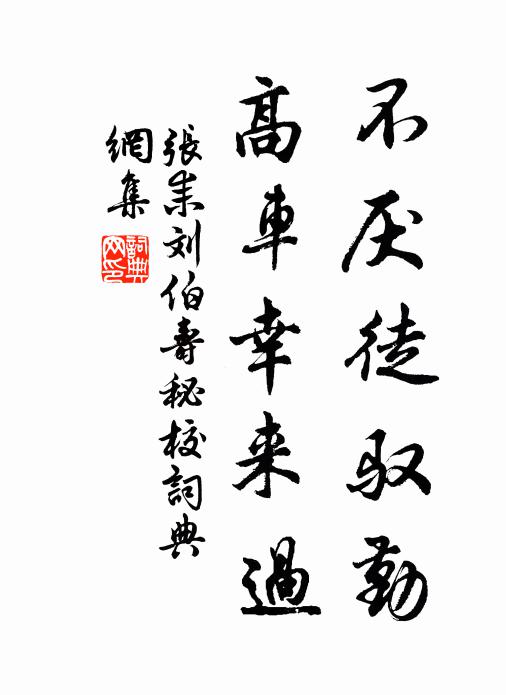 不厌徒驭勤
高車幸来過
張耒刘伯壽秘校詞典
網集
詞典
网印